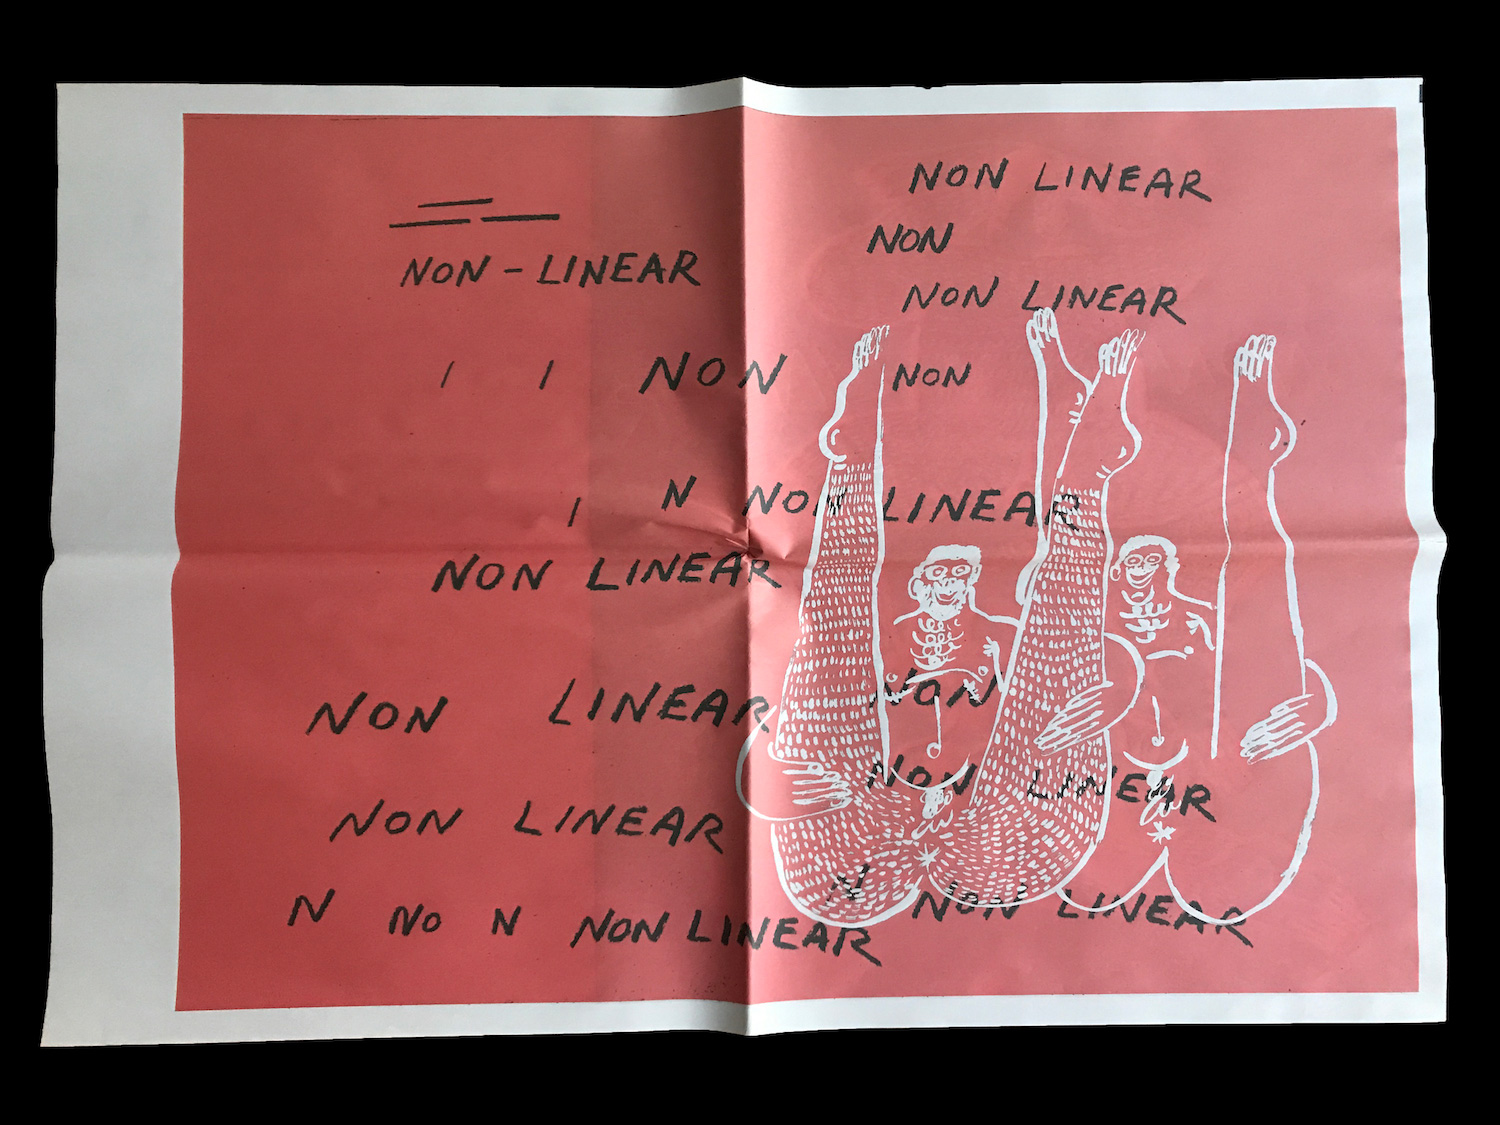 NON LINEAR
NON
NON-LINEAR
NON LINEAR
NON NON
N NON LINEAR
NON LINEAR
NON LINEAR NON
NON LINEAR
NON LINEAR
N NON LINEAR
N NO N NON LINEAR